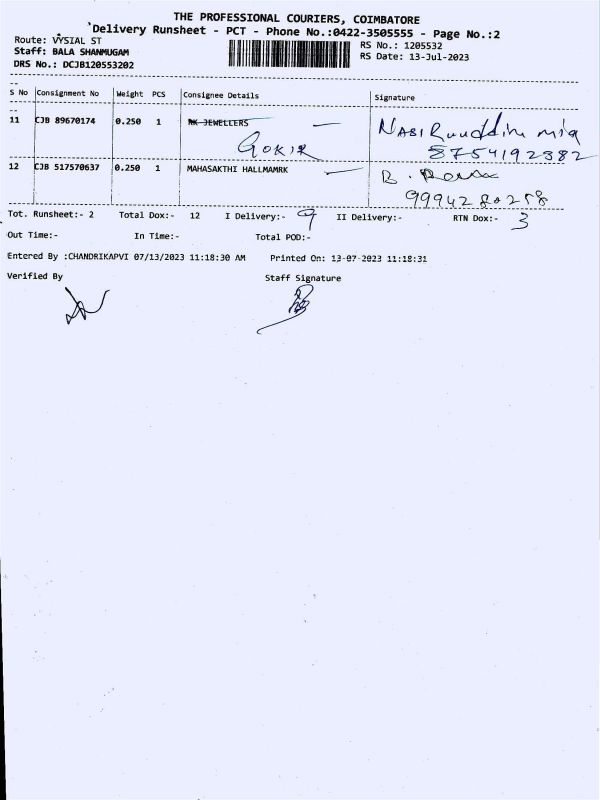 THE PROFESSIONAL COURIERS, COIMBATORE
Delivery Runsheet - PCT - Phone No.:0422-3505555 - Page No.:2
Route: VYSIAL ST
RS No.: 1205532
Staff: BALA SHANMUGAM
RS Date: 13-Jul-2023
DRS No.: DCJB120553202
S No Consignment No Weight PCS Consignee Details Signature
11 CJB 89670174 0.250 1 RK JEWELLERS
8754192382
12 CJB 517570637 0.250 1 MAHASAKTHI HALLMAMRK
Tot. Runsheet:- 2 Total Dox:- 12 I Delivery:- 9 II Delivery:- RTN Dox:- 3
Out Time:- In Time:- Total POD:-
Entered By :CHANDRIKAPVI 07/13/2023 11:18:30 AM Printed On: 13-07-2023 11:18:31
Verified By Staff Signature